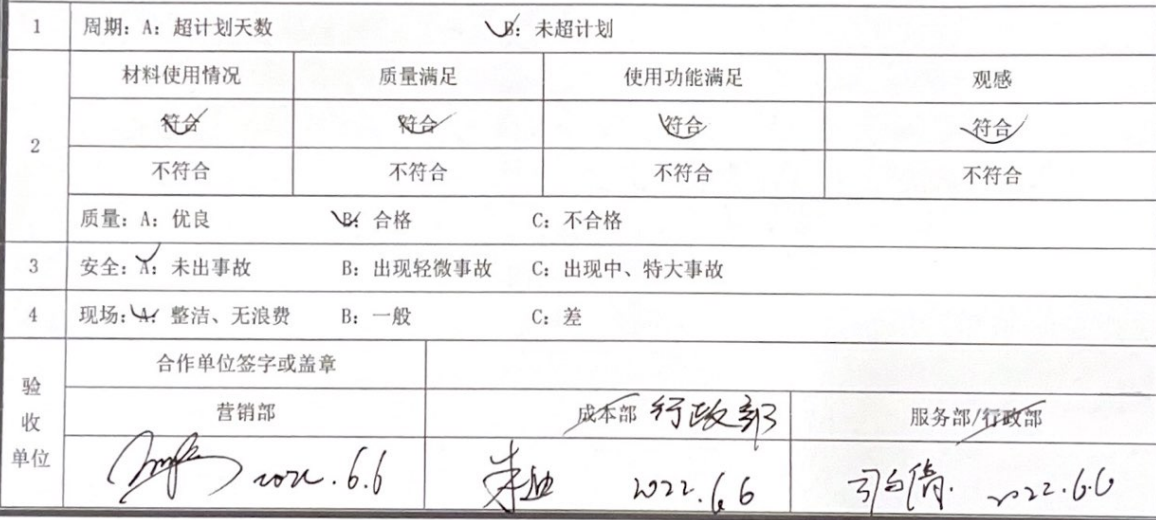 1 周期: A: 超计划天数 B: 未超计划
2
材料使用情况 质量满足 使用功能满足 观感
符合 符合 符合 符合
不符合 不符合 不符合 不符合
质量: A: 优良 B: 合格 C: 不合格
3 安全: A: 未出事故 B: 出现轻微事故 C: 出现中、特大事故
4 现场: A: 整洁、无浪费 B: 一般 C: 差
验收单位
合作单位签字或盖章
营销部 成本部 行政部 服务部/行政部
2022.6.6 2022.6.6 2022.6.6